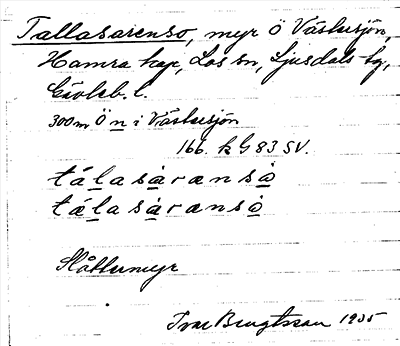 Tallasarenso, myr Ö Västusjön,
Hamra kap, Los sn, Ljusdals tg,
Gävleb. l.
300 m Ö n i Västusjön
166. k G 83 SV.
tálasàranså
tálasàranså
Slåttermyr
Ivar Bengtsson 1935